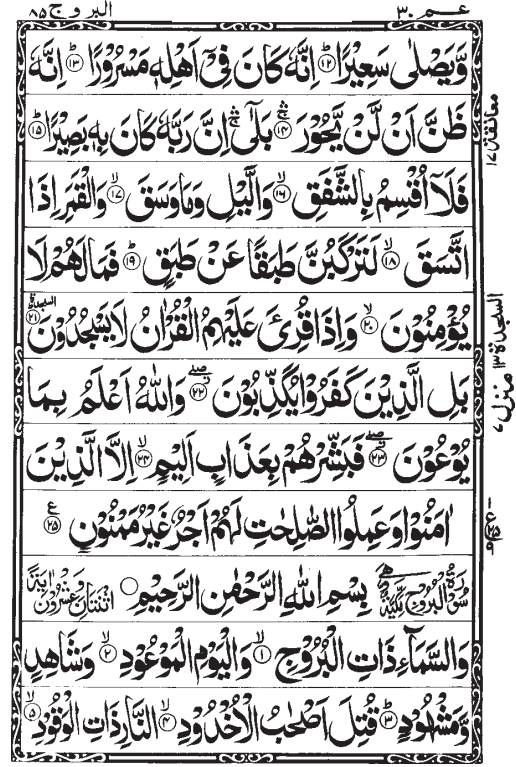 عم ٣٠ البروج ٨٥
وَّيَصْلٰى سَعِيْرًا ۝١٢ اِنَّهٗ كَانَ فِىْۤ اَهْلِهٖ مَسْرُوْرًا ۝١٣ اِنَّهٗ
ظَنَّ اَنْ لَّنْ يَّحُوْرَ ۝١٤ بَلٰٓى ۛ اِنَّ رَبَّهٗ كَانَ بِهٖ بَصِيْرًا ۝١٥
معانقة ١٧
فَلَاۤ اُقْسِمُ بِالشَّفَقِ ۝١٦ وَالَّيْلِ وَمَا وَسَقَ ۝١٧ وَالْقَمَرِ اِذَا
اتَّسَقَ ۝١٨ لَتَرْكَبُنَّ طَبَقًا عَنْ طَبَقٍ ۝١٩ فَمَا لَهُمْ لَا
يُؤْمِنُوْنَ ۝٢٠ وَاِذَا قُرِئَ عَلَيْهِمُ الْقُرْاٰنُ لَا يَسْجُدُوْنَ ۝٢١ السجدة
السجدة ١٣ منزل ٧
بَلِ الَّذِيْنَ كَفَرُوْا يُكَذِّبُوْنَ ۝٢٢ وَاللّٰهُ اَعْلَمُ بِمَا
يُوْعُوْنَ ۝٢٣ فَبَشِّرْهُمْ بِعَذَابٍ اَلِيْمٍ ۝٢٤ اِلَّا الَّذِيْنَ
اٰمَنُوْا وَعَمِلُوا الصّٰلِحٰتِ لَهُمْ اَجْرٌ غَيْرُ مَمْنُوْنٍ ۝٢٥ ع
سُوْرَةُ الْبُرُوْجِ مَكِّيَّةٌ بِسْمِ اللّٰهِ الرَّحْمٰنِ الرَّحِيْمِ ۝ اثْنَتَانِ وَّعِشْرُوْنَ اٰيَةً
وَالسَّمَآءِ ذَاتِ الْبُرُوْجِ ۝١ وَالْيَوْمِ الْمَوْعُوْدِ ۝٢ وَشَاهِدٍ
وَّمَشْهُوْدٍ ۝٣ قُتِلَ اَصْحٰبُ الْاُخْدُوْدِ ۝٤ النَّارِ ذَاتِ الْوَقُوْدِ ۝٥